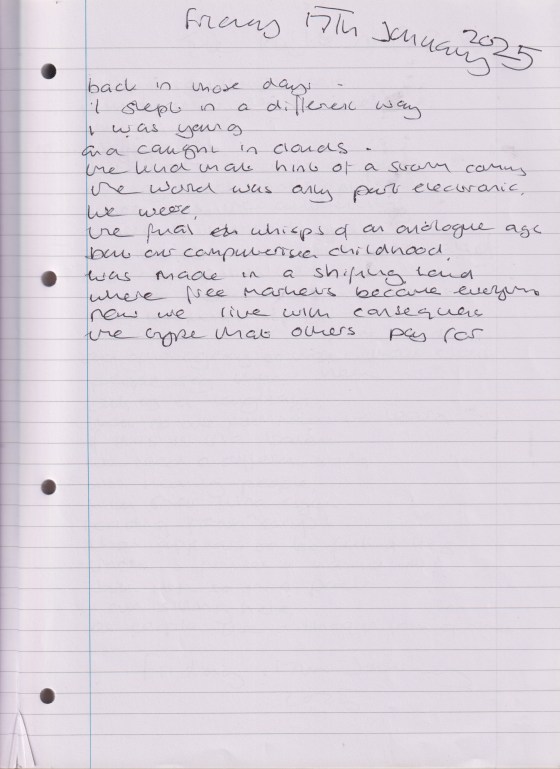 Friday 17th January 2025
back in those days.
i slept in a different way
i was young
and caught in clouds.
the kind that hint of a storm coming
the world was only part electronic.
we were,
the final whisps of an analogue age
but our computerised childhood,
was made in a shifting land
where free markets became everything
now we live with consequence
the type that others pay for